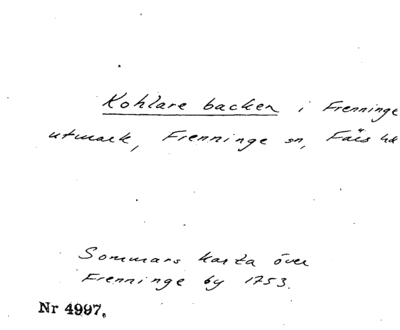 Kohlare backen i Frenninge
utmark, Frenninge sn, Färs hd
Sommars karta över
Frenninge by 1753.
Nr 4997.